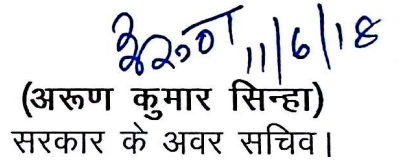 अरूण 11/6/18
(अरूण कुमार सिन्हा)
सरकार के अवर सचिव।